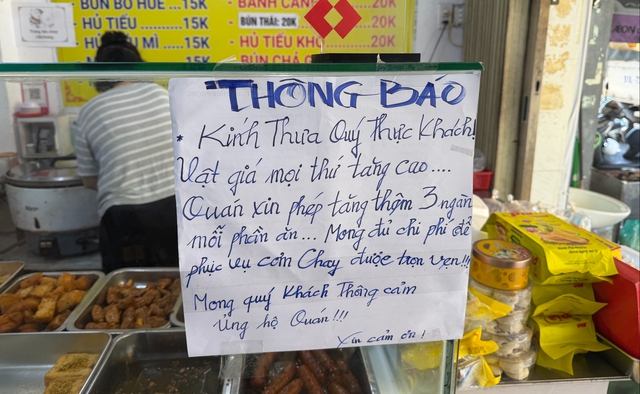 BÚN BÒ HUẾ ...15K
HỦ TIẾU ...15K
HỦ TIẾU MÌ ...15K
- BÁNH CANH ...20K
- BÚN THÁI: 20K
- HỦ TIẾU KHO ...20K
- BÚN CHẢ
THÔNG BÁO
* Kính Thưa Quý Thực Khách!
Vật giá mọi thứ tăng cao....
Quán xin phép tăng thêm 3 ngàn
mỗi phần ăn... Mong đủ chi phí để
phục vụ cơm Chay được trọn vẹn!!!
Mong quý Khách Thông cảm
Ủng hộ Quán!!!
Xin cảm ơn!
AEON